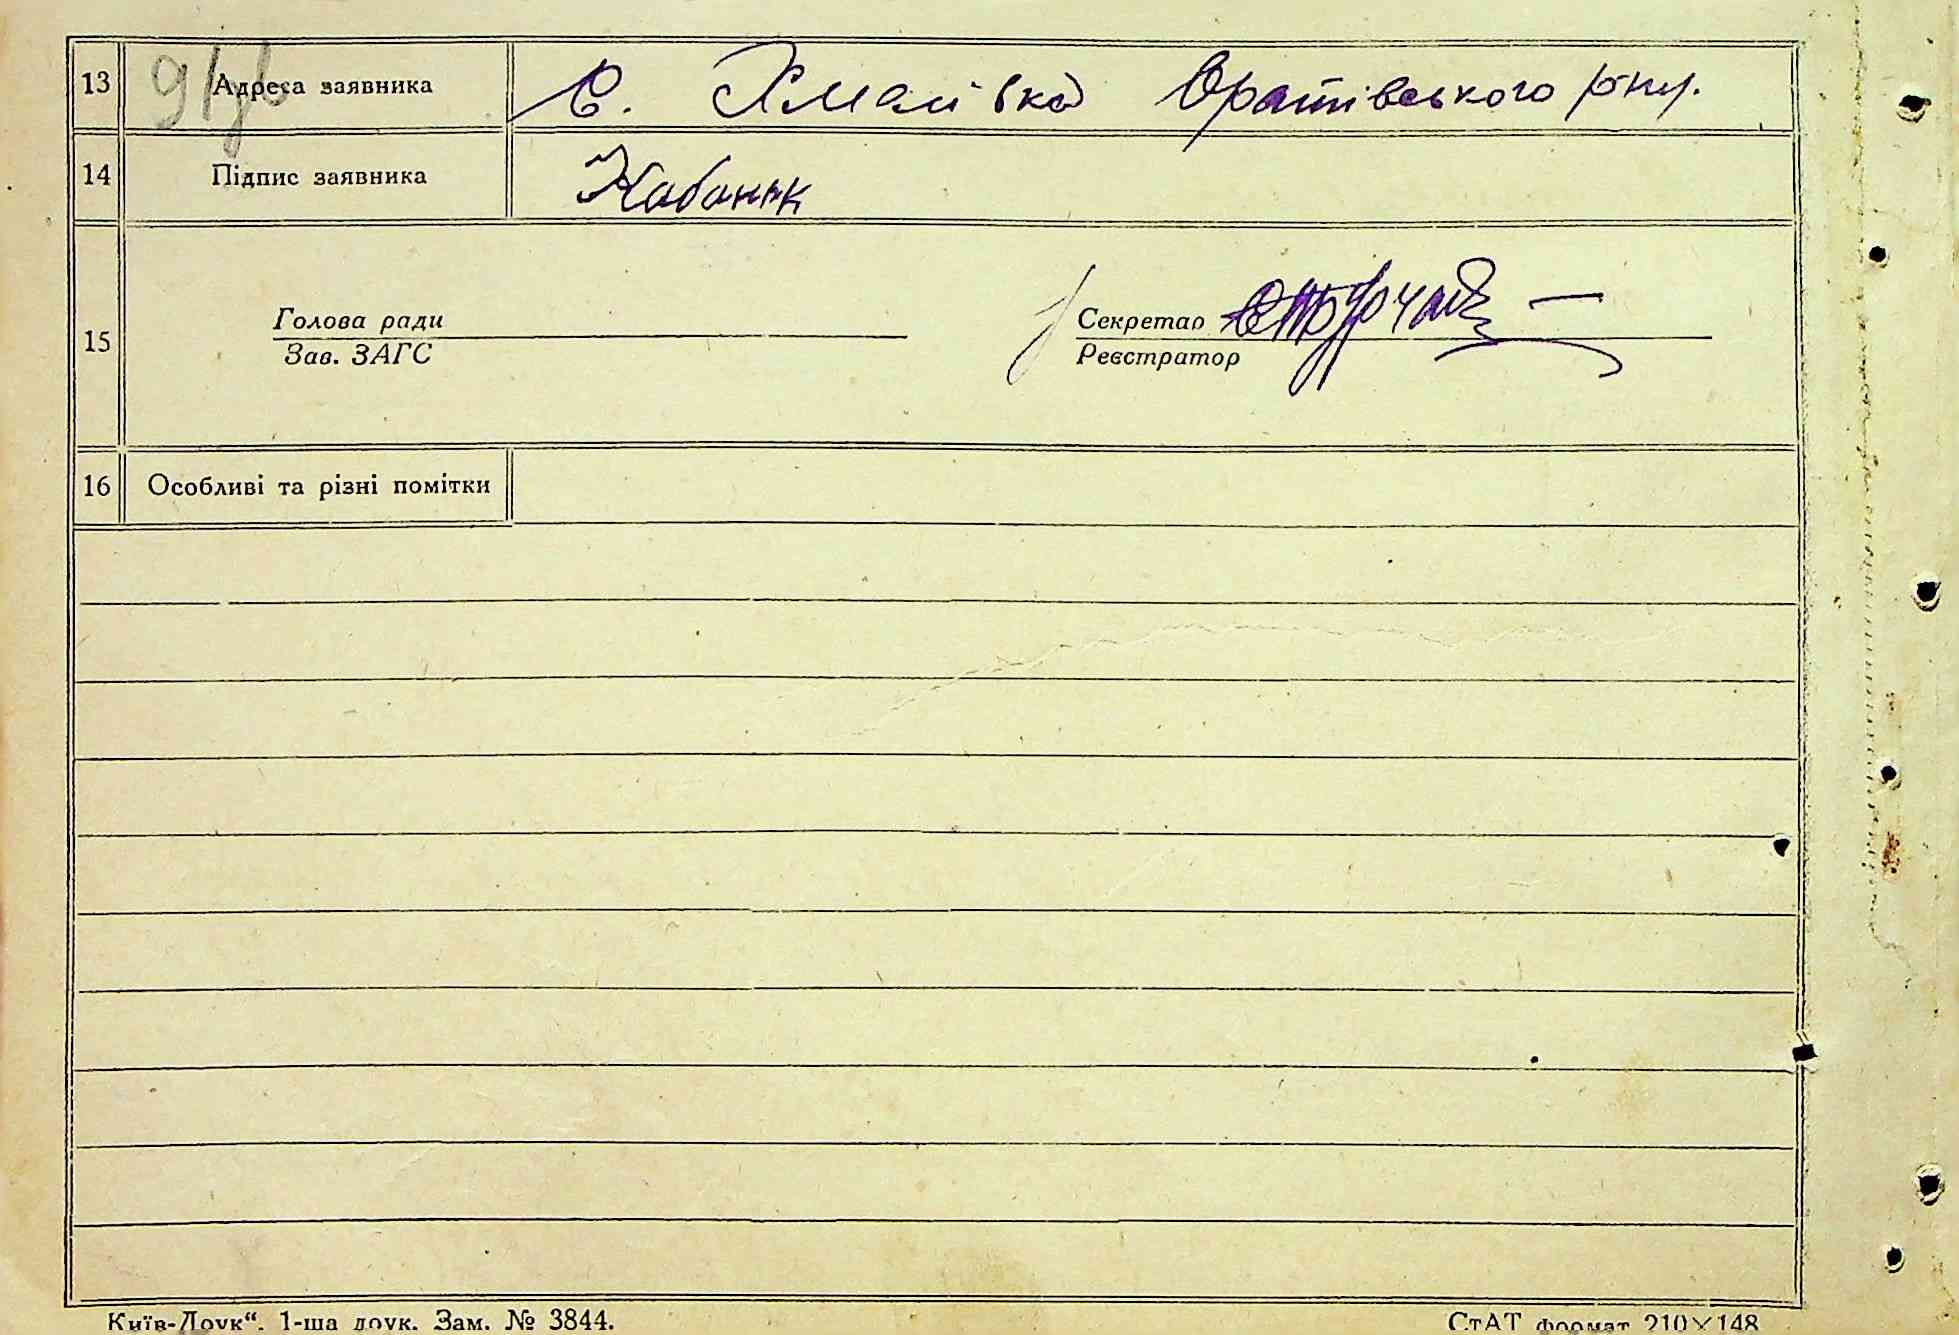 13 Адреса заявника С. Хмелівка Оратівського р-ну.
14 Підпис заявника Кабанюк
15 Голова ради Секретар
Зав. ЗАГС Реєстратор
16 Особливі та різні помітки
Київ-Друк“. 1-ша друк. Зам. № 3844. СтАТ формат 210×148